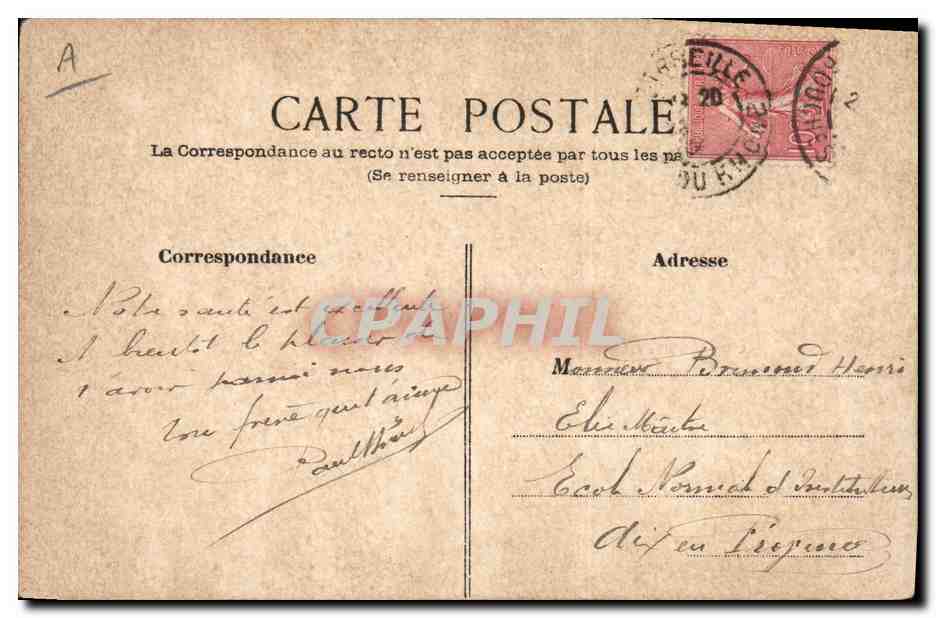 A
CARTE POSTALE
La Correspondance au recto n'est pas acceptée par tous les pa
(Se renseigner à la poste)
MARSEILLE
20
DU RHONE
BOUCHES
2
10
Correspondance
Adresse
Notre santé est excellente
A bientôt le plaisir de
t'avoir parmi nous
ton frère qui t'aime
Paul
CPAPHIL
Monsieur Bremond Henri
Elie Maitre
Ecole Normale d'Instituteurs
Aix en Provence